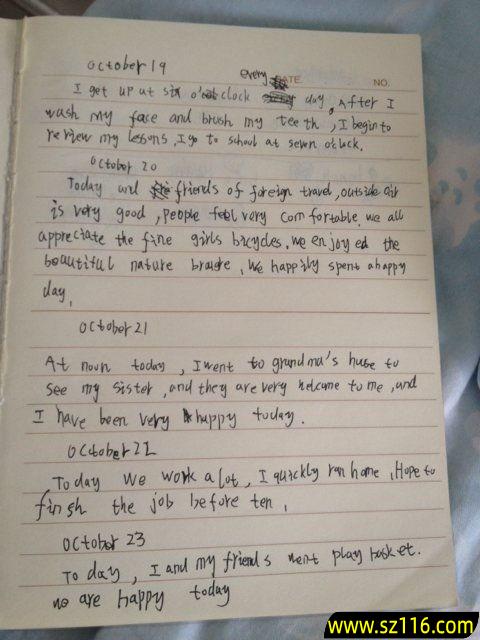 October 19
every DATE. NO.
I get up at six o'clock day, After I
wash my face and brush my teeth, I begin to
review my lessons, I go to school at seven o'clock.
October 20
Today and friends of foreign travel, outside air
is very good, people feel very comfortable. we all
appreciate the fine girls bicycles. we enjoyed the
beautiful nature , We happily spent a happy
day.
October 21
At noon today, I went to grandma's huse to
see my sister, and they are very welcome to me, and
I have been very happy today.
October 22
Today we work a lot, I quickly ran home, Hope to
finish the job before ten.
October 23
Today, I and my friends went play basket.
we are happy today
www.sz116.com